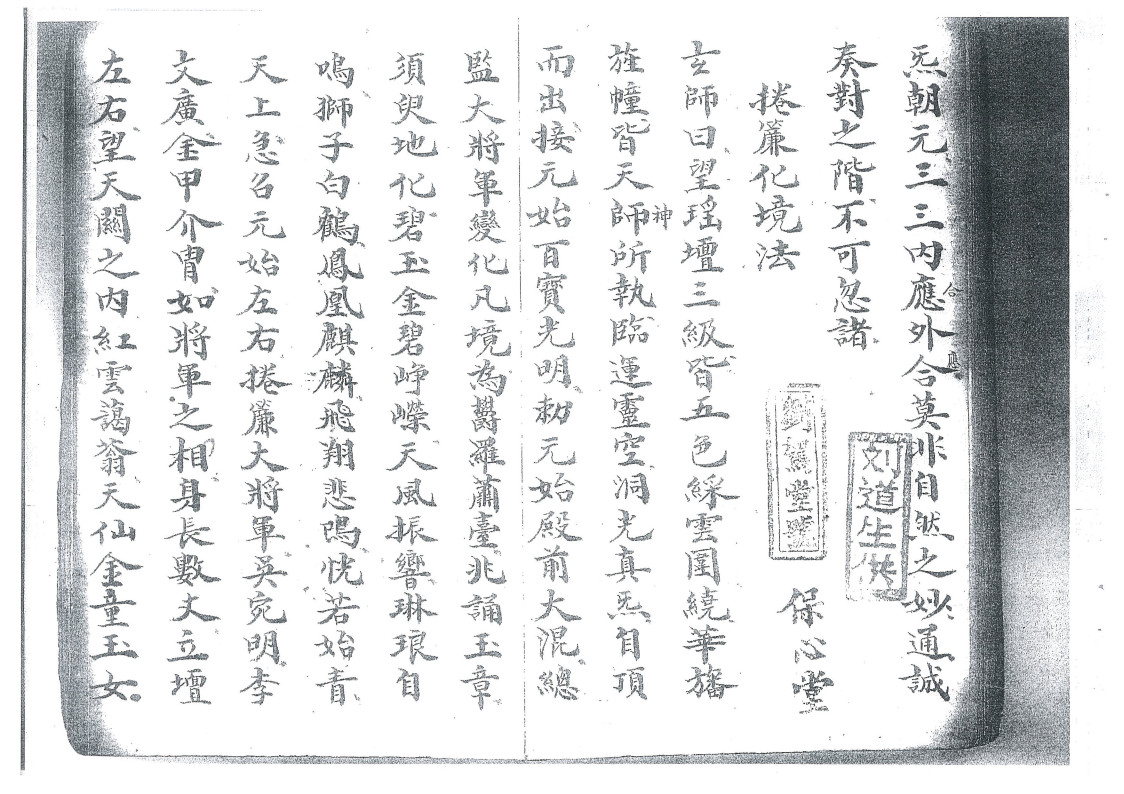 炁朝元三三內應外合莫非自然之妙通誠
合
奏對之階不可忽諸
刘道生
保心堂
捲簾化境法
玄師曰望瑤壇三級皆五色綵雲圍繞華旛
旌幢皆天師所執臨運靈空洞光真炁自頂
神
而出接元始百寶光明勑元始殿前大混總
監大將軍變化凡境為欝羅蕭臺兆誦玉章
須臾地化碧玉金碧崢嶸天風振響琳琅自
鳴獅子白鶴鳳凰麒麟飛翔悲鳴恍若始青
天上急召元始左右捲簾大將軍吳宛明李
文廣金甲介冑如將軍之相身長數丈立壇
左右望天闗之內紅雲藹蓊天仙金童玉女